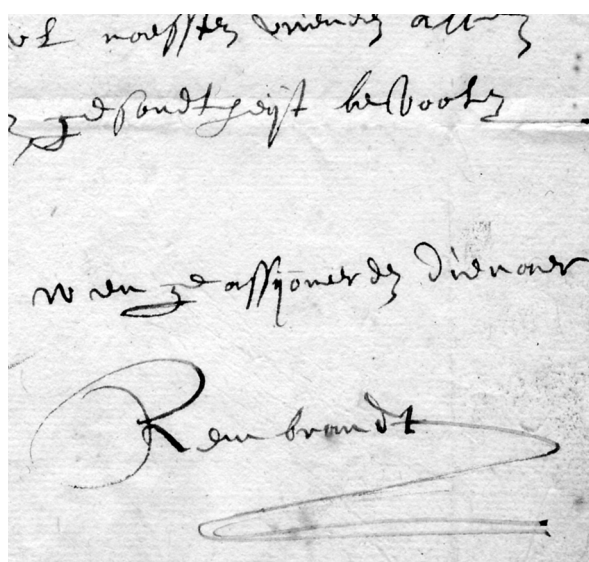 naesten vrienden
gesondtheijt bevoolen
U en geaffijoneerden dienaer
Rembrandt